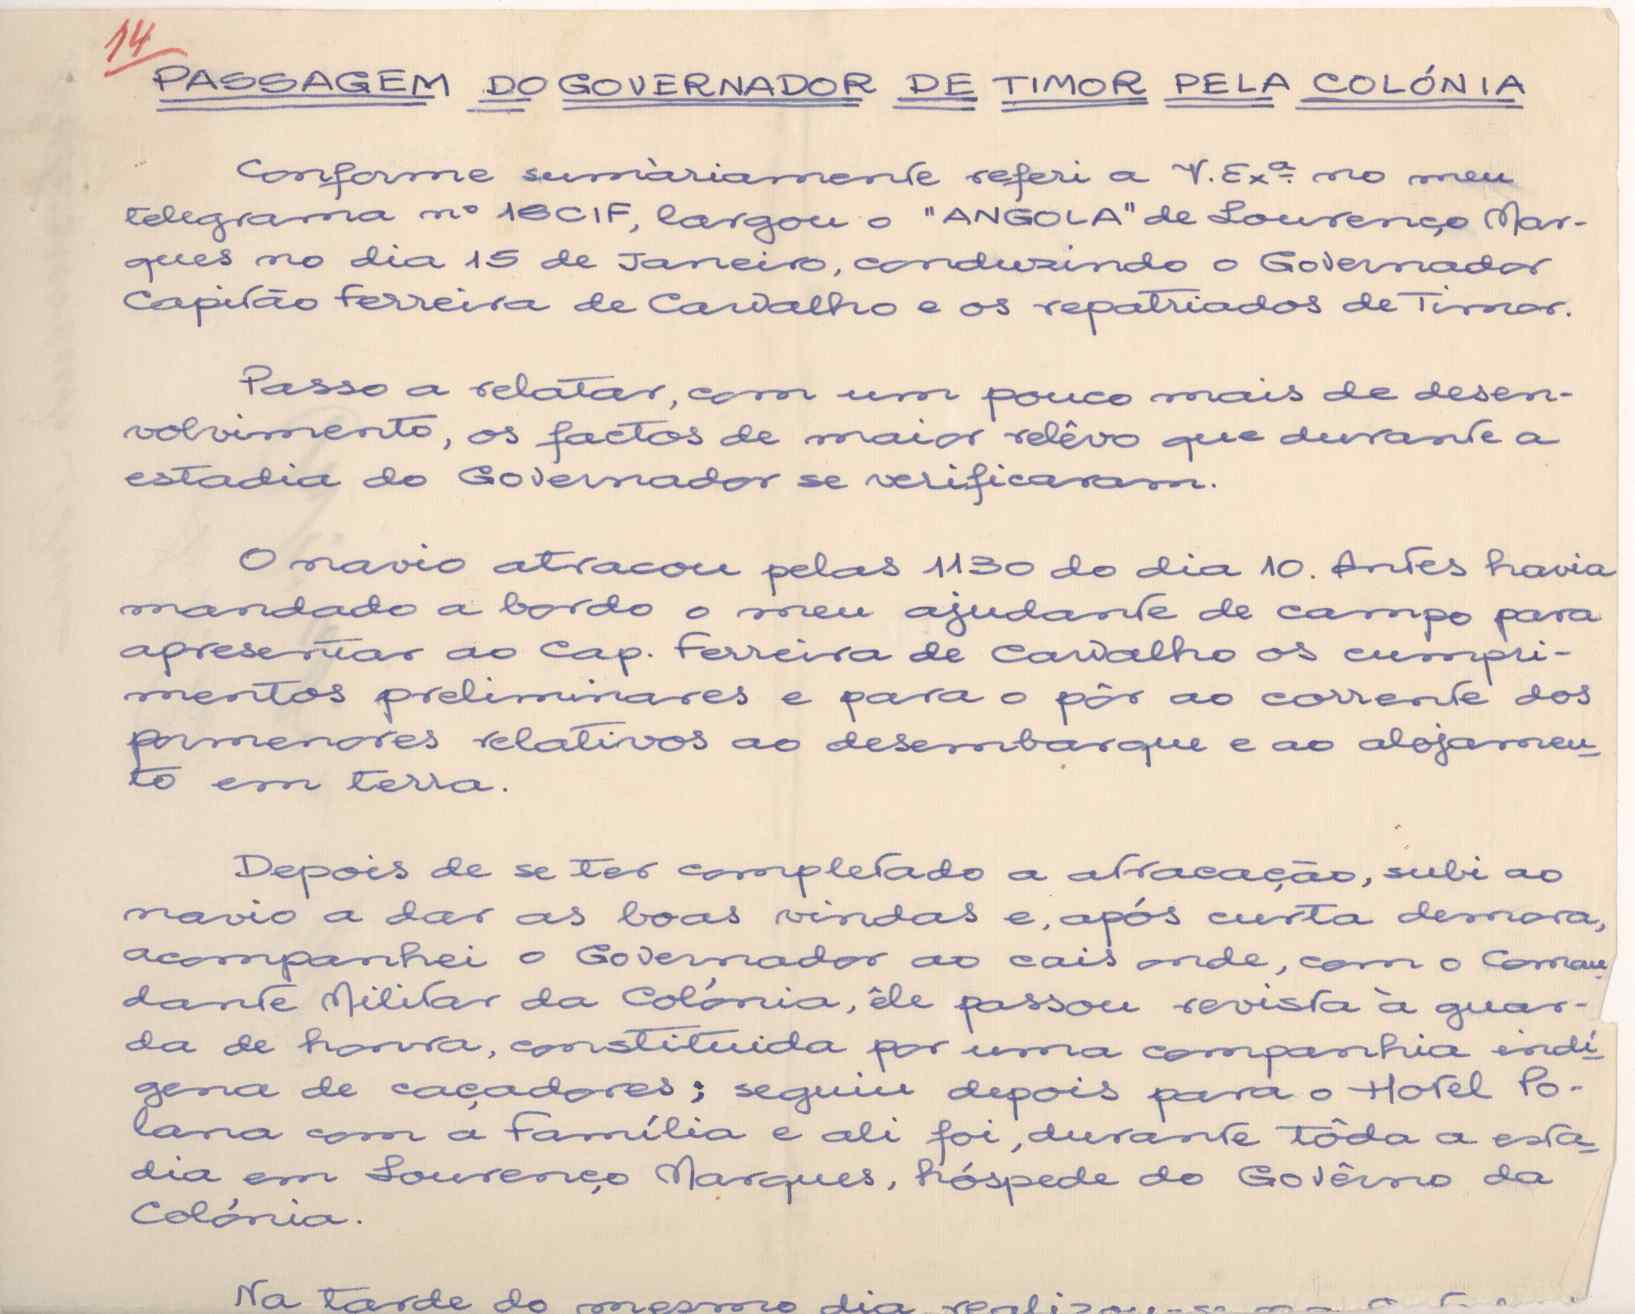 14
PASSAGEM DO GOVERNADOR DE TIMOR PELA COLÓNIA
Conforme sumàriamente referi a V. Exª. no meu
telegrama nº 18CIF, largou o "ANGOLA" de Lourenço Mar-
ques no dia 15 de Janeiro, conduzindo o Governador
Capitão Ferreira de Carvalho e os repatriados de Timor.
Passo a relatar, com um pouco mais de desen-
volvimento, os factos de maior relêvo que durante a
estadia do Governador se verificaram.
O navio atracou pelas 1130 do dia 10. Antes havia
mandado a bordo o meu ajudante de campo para
apresentar ao Cap. Ferreira de Carvalho os cumpri-
mentos preliminares e para o pôr ao corrente dos
pormenores relativos ao desembarque e ao alojamen-
to em terra.
Depois de se ter completado a atracação, subi ao
navio a dar as boas vindas e, após curta demora,
acompanhei o Governador ao cais onde, com o Coman-
dante Militar da Colónia, êle passou revista à guar-
da de honra, constituida por uma companhia indí-
gena de caçadores; seguiu depois para o Hotel Po-
lana com a Família e ali foi, durante tôda a esta-
dia em Lourenço Marques, hóspede do Govêrno da
Colónia.
Na tarde do mesmo dia realizou-se na